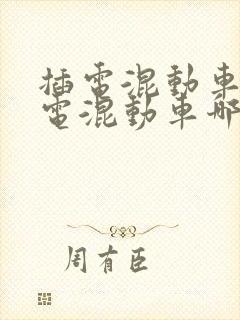 插電混動車
電混動車哪
周有臣